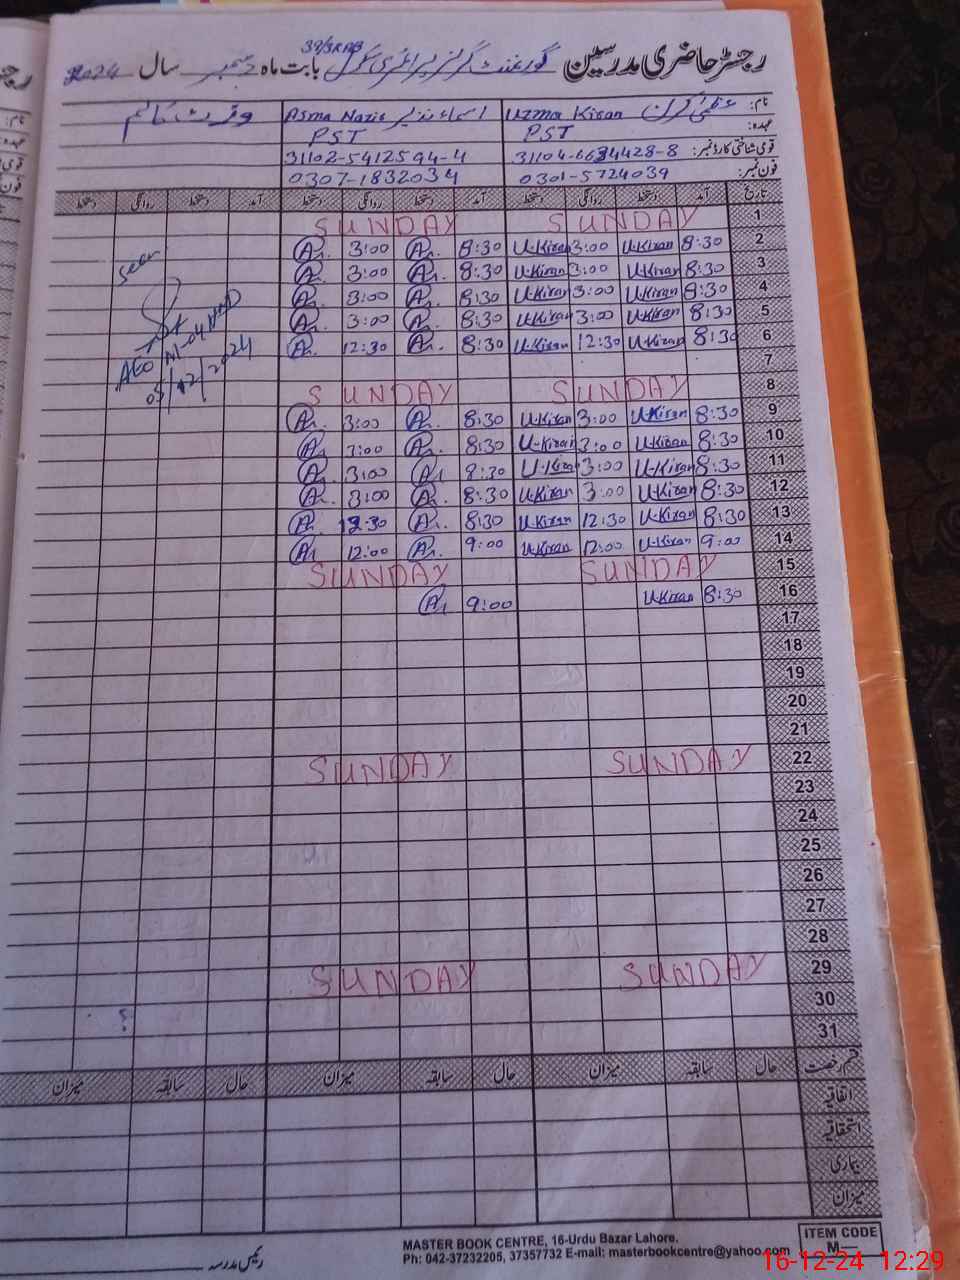 رجسٹر حاضری مدرسین گورنمنٹ گرلز پرائمری سکول 39/3R بابت ماہ دسمبر سال 2024
نام: عظمیٰ کرن Uzma Kiran اسماء نذیر Asma Nazir
عہدہ: PST PST
قومی شناختی کارڈ نمبر: 31104-6634428-8 31102-5412594-4
فون نمبر: 0301-5724039 0307-1832034
تاریخ آمد دستخط روانگی دستخط آمد دستخط روانگی دستخط آمد دستخط روانگی دستخط
1 SUNDAY SUNDAY
2 8:30 U-Kiran 3:00 U-Kiran 8:30 A. 3:00 A.
3 8:30 U-Kiran 3:00 U-Kiran 8:30 A. 3:00 A.
4 8:30 U-Kiran 3:00 U-Kiran 8:30 A. 3:00 A.
5 8:30 U-Kiran 3:00 U-Kiran 8:30 A. 3:00 A.
6 8:30 U-Kiran 12:30 U-Kiran 8:30 A. 12:30 A.
7
8 SUNDAY SUNDAY
9 8:30 U-Kiran 3:00 U-Kiran 8:30 A. 3:00 A.
10 8:30 U-Kiran 3:00 U-Kiran 8:30 A. 3:00 A.
11 8:30 U-Kiran 3:00 U-Kiran 8:30 A. 3:00 A.
12 8:30 U-Kiran 3:00 U-Kiran 8:30 A. 3:00 A.
13 8:30 U-Kiran 12:30 U-Kiran 8:30 A. 12:30 A.
14 9:00 U-Kiran 12:00 U-Kiran 9:00 A. 12:00 A.
15 SUNDAY SUNDAY
16 8:30 U-Kiran 9:00 A.
17
18
19
20
21
22 SUNDAY SUNDAY
23
24
25
26
27
28
29 SUNDAY SUNDAY
30
31
Seen
AEO
05/12/2024
قسم رخصت حال سابقہ میزان حال سابقہ میزان حال سابقہ میزان
اتفاقیہ
استحقاقیہ
بیماری
میزان
رئیس مدرسہ
MASTER BOOK CENTRE, 16-Urdu Bazar Lahore.
Ph: 042-37232205, 37357732 E-mail: masterbookcentre@yahoo.com
ITEM CODE
M—
16-12-24 12:29